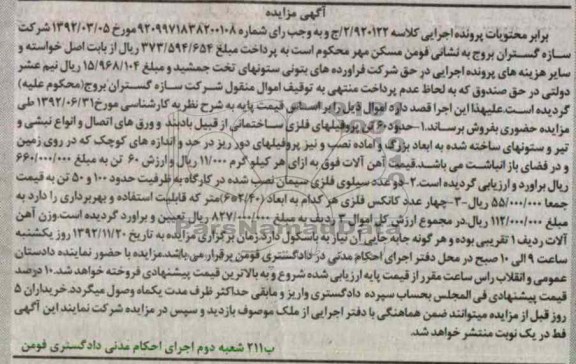 آگهی مزایده
برابر محتویات پرونده اجرایی کلاسه ۲/۹۲۰۱۲۲/ج و به وجب رای شماره ۹۲۰۹۹۷۱۸۳۸۲۰۰۱۰۸ مورخ ۱۳۹۲/۰۳/۰۵ شرکت
سازه گستران بروج به نشانی فومن مسکن مهر محکوم است به پرداخت مبلغ ۳۷۳/۵۹۴/۶۵۴ ریال از بابت اصل خواسته و
سایر هزینه های پرونده اجرایی در حق شرکت فراورده های بتونی ستونهای تخت جمشید و مبلغ ۱۵/۹۶۸/۱۰۴ ریال نیم عشر
دولتی در حق صندوق که به لحاظ عدم پرداخت منتهی به توقیف اموال منقول شرکت سازه گستران بروج(محکوم علیه)
گردیده است.علیهذا این اجرا قصد دارد اموال ذیل را بر اساس قیمت پایه به شرح نظریه کارشناسی مورخ ۱۳۹۲/۰۶/۳۱ طی
مزایده حضوری بفروش برساند.۱-حدود ۶۰ تن پروفیلهای فلزی ساختمانی از قبیل بادبند و ورق های اتصال و انواع نبشی و
تیر و ستونهای ساخته شده به ابعاد بزرگ و آماده نصب و نیز پروفیلهای دور ریز در حد و اندازه های کوچک که در روی زمین
و در فضای باز انباشت می باشد.قیمت آهن آلات فوق به ازای هر کیلو گرم ۱۱/۰۰۰ ریال و ارزش ۶۰ تن به مبلغ ۶۶۰/۰۰۰/۰۰۰
ریال براورد و ارزیابی گردیده است.۲-دو عدد سیلوی فلزی سیمان نصب شده در کارگاه به ظرفیت حدود ۱۰۰ و ۵۰ تن به قیمت
جمعا ۵۵/۰۰۰/۰۰۰ ریال-۳-چهار عدد کانکس فلزی هر کدام به ابعاد (۲/۴۰*۶)متر که قابلیت استفاده و بهربرداری را دارد به
مبلغ ۱۱۲/۰۰۰/۰۰۰ ریال.در مجموع ارزش کل اموال ۳ ردیف به مبلغ ۸۲۷/۰۰۰/۰۰۰ ریال تعیین و براورد گردیده است.وزن آهن
آلات ردیف ۱ تقریبی بوده و هر گونه جابه جایی آن نیاز به باسکول دارد.زمان برگزاری مزایده به تاریخ ۱۳۹۲/۱۱/۲۰ روز یکشنبه
ساعت ۹ الی ۱۰ صبح در محل دفتر اجرای احکام مدنی در دادگستری فومن برقرار می باشد.مزایده با حضور نماینده دادستان
عمومی و انقلاب راس ساعت مقرر از قیمت پایه ارزیابی شده شروع و به بالاترین قیمت پیشنهادی فروخته خواهد شد.۱۰ درصد
قیمت پیشنهادی فی المجلس بحساب سپرده دادگستری واریز و مابقی حداکثر ظرف مدت یکماه وصول میگردد.خریداران ۵
روز قبل از مزایده میتوانند ضمن هماهنگی با دفتر اجرایی از ملک موصوف بازدید و سپس در مزایده شرکت نمایند این آگهی
فط در یک نوبت منتشر خواهد شد.
ب۲۱۱ شعبه دوم اجرای احکام مدنی دادگستری فومن
ParsNamadData